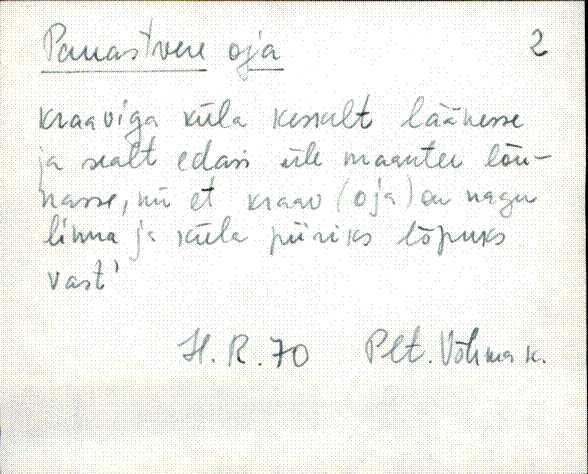 Panastvere oja 2
kraaviga küla keskelt läänesse
ja sealt edasi üle maantee lõu-
nasse, nii et kraav (oja) on nagu
linna ja küla piiriks lõpuks
vast'
H. R. 70 Plt. Võhma k.